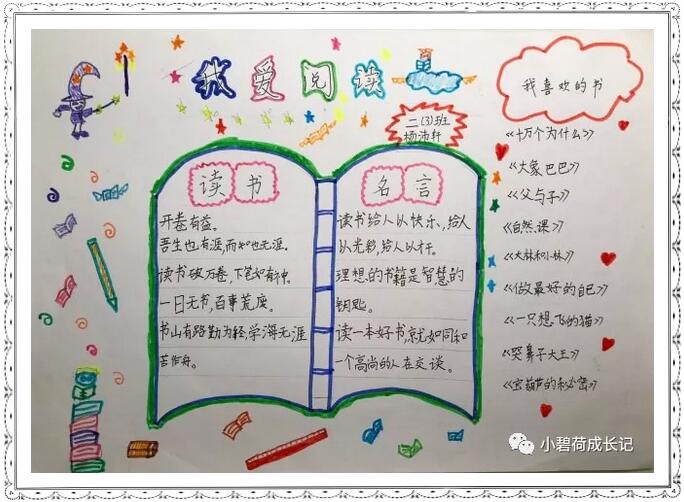 我爱阅读
二(3)班
杨沛轩
读书
开卷有益。
吾生也有涯,而知也无涯。
读书破万卷,下笔如有神。
一日无书,百事荒废。
书山有路勤为径,学海无涯
苦作舟。
名言
读书给人以快乐,给人
以光彩,给人以才。
理想的书籍是智慧的
钥匙。
读一本好书,就如同和
一个高尚的人在交谈。
我喜欢的书
《十万个为什么》
《大象巴巴》
《父与子》
《自然课》
《大林和小林》
《做最好的自己》
《一只想飞的猫》
《哭鼻子大王》
《宝葫芦的秘密》
小碧荷成长记